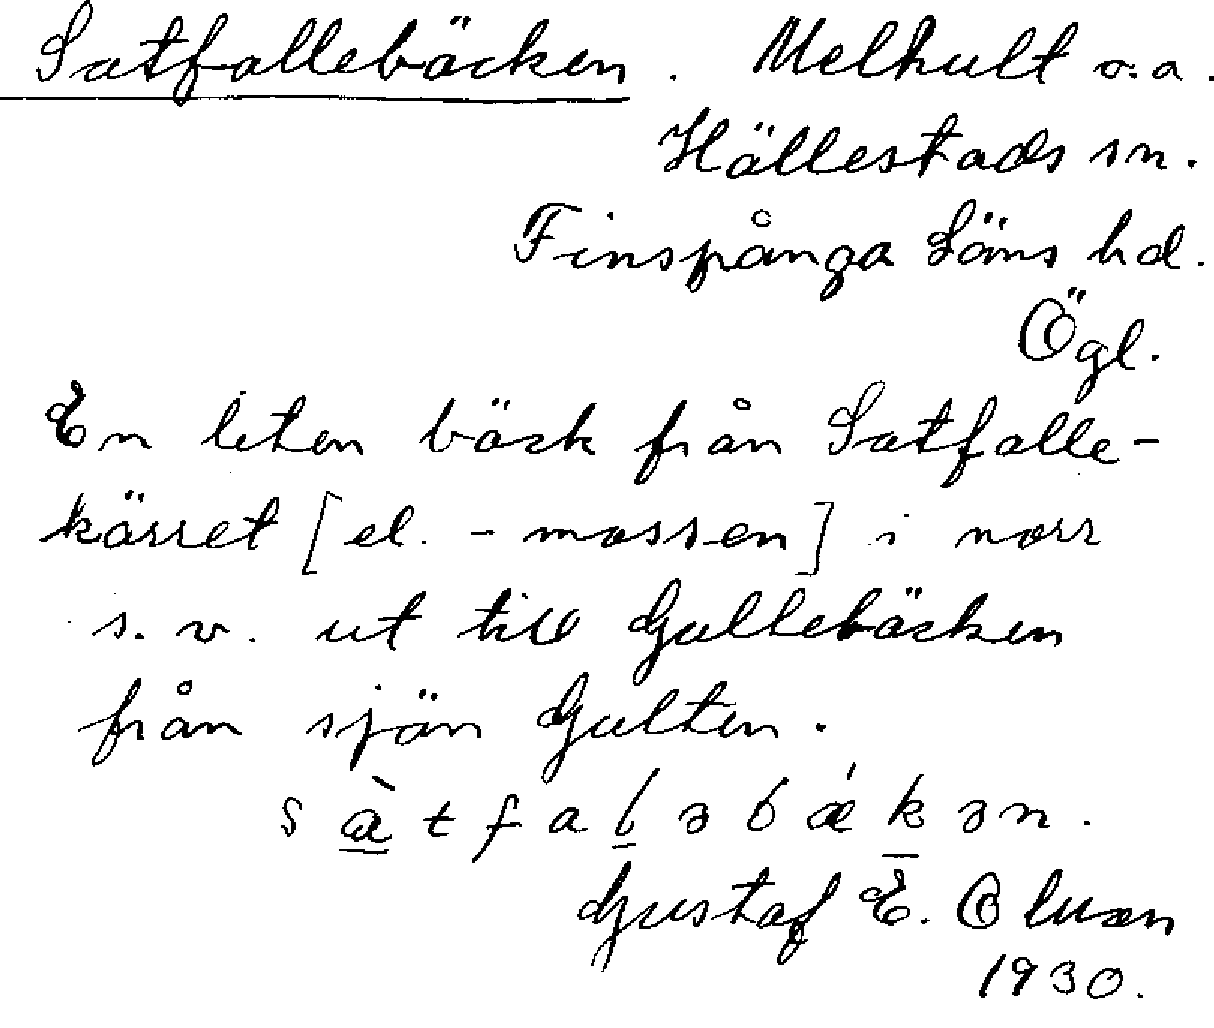 Satfallebäcken. Melhult o.a.
Hällestads sn.
Finspånga Läns hd.
Ögl.
En liten bäck från Satfalle-
kärret [el. - mossen] i norr
s. v. ut till Gullebäcken
från sjön Gulten.
sàtfalɜbǽkɜn.
Gustaf E.
1930.